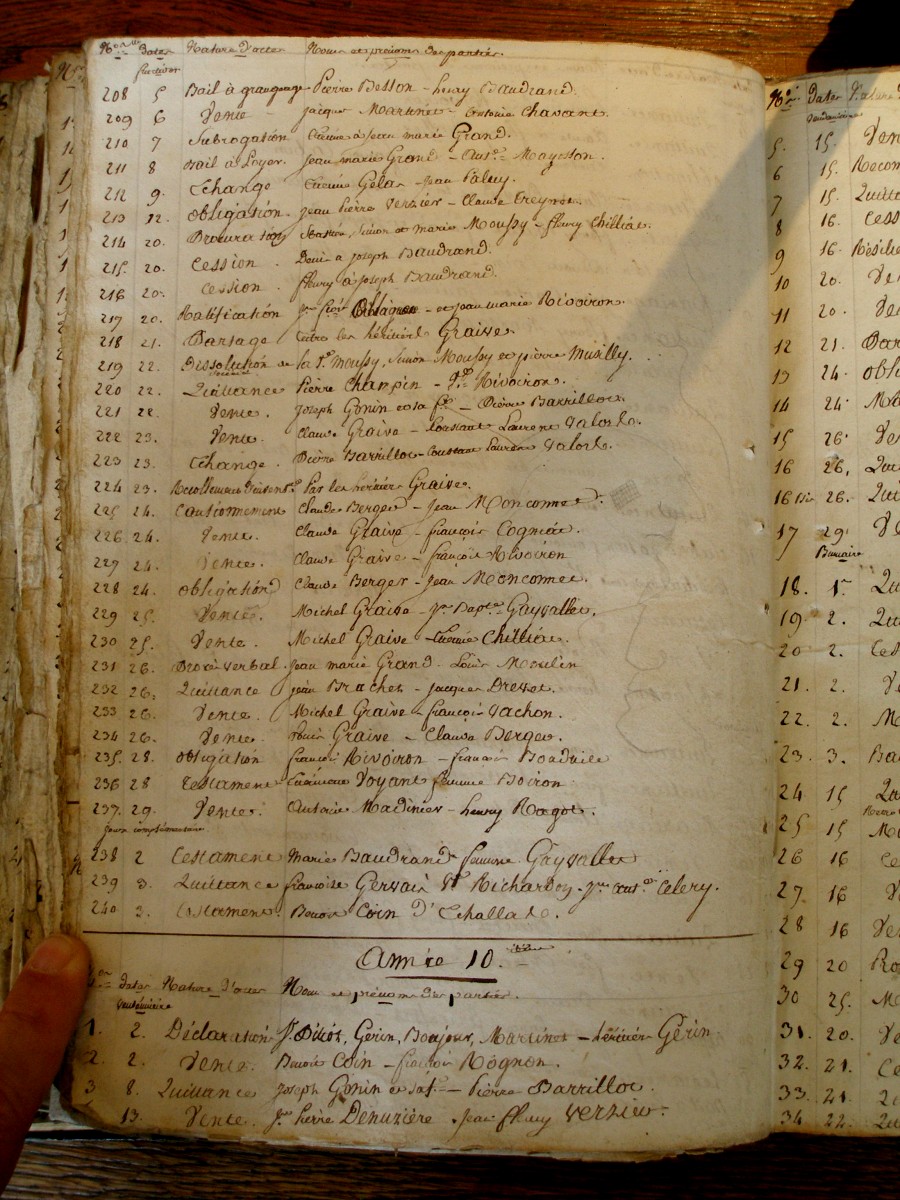 Nos Dates Nature d'actes Noms et prénoms des parties.
fructidor
208 5 Bail à grangeage Pierre Besson - henry Baudrand
209 6 Vente - jacques Martinet - antoine Chavant.
210 7 Subrogation Etienne à jean marie Grand.
211 8 Bail à Loyer. jean marie Grand - Mayosson.
212 9. Echange Etienne Gélas - jean
213 12. Obligation. jean Pierre Verzier - Claude
214 20. Procuration simon et marie Moussy - fleury Chilliat.
215. 20. Cession . Denis à joseph Baudrand.
216 20. Cession . fleury à joseph Baudrand.
217 20. Ratification - et jean marie Rivoiron.
218 21. Partage Entre les héritiers Graive.
219 22. Dissolution de la Sté moussy, simon Moussy et pierre Musilly.
220 22. Quittance Pierre Champin - Rivoiron.
221 22. Vente. joseph Gonin et sa fe - Pierre Barrillot.
222 23. Vente. Claude Graive - Constant Laurent Valork.
223 23. Echange. Pierre Barrillot - Constant Laurent Valork.
224 23. Par les héritiers Graive.
225 24. Cautionnement Claude Berger - jean Moncomet.
226 24. Vente. Claude Graive - françois Cognat.
227 24. Vente. Claude Graive - françois Rivoiron
228 24. obligation Claude Berger - jean Moncomet.
229 25. Vente. Michel Graive - jn Bapte Gayvallet.
230 25. Vente. Michel Graive - Etienne Chilliat.
231 26. Procès verbal. jean marie Grand - Louis Moulin
232 26. Quittance jean Brachet - jacques Drevet.
233 26. Vente. Michel Graive - françois Vachon.
234 26. Vente. Graive - Claude Berger.
235. 28. obligation françois Rivoiron - françois
236 28 Testament Voyant femme Boiron
237. 29. Vente. Antoine Madinier - henry Ragot.
jours complémentaires
238 2 Testament Marie Baudrand femme Gayvallet
239 3. Quittance françoise Gervais Ve Richardon - Celery.
240 3. Testament. Benoit Coin D'Echallas.
Année 10.
Nos Dates Nature d'actes Noms et prénoms des parties.
Vendémiaire
1. 2. Déclaration Gerin, Bonjour, Martinet - héritier Gerin
2. 2. Vente. Benoit Coin - françois Rognon.
3 8. Quittance joseph Gonin et sa fe - Pierre Barrillot.
13. Vente. jn Pierre Denuzière - jean fleury Verzier.
Nos Dates Nature
Vendémiaire
5. 15. Ven
6 15. Recon
7 15. Quitt
8 16. Cess
9 16. Résilie
10 20. Ve
11 20. Ve
12 21. Par
13 24. obli
14 24. Ma
15 26. Ve
16 26. Qui
16 bis 26. Qui
17 29. Ve
Brumaire
18. 1er Qu
19. 2. Qu
20 2. Ces
21. 2. Ve
22. 2. M
23. 3. Ba
24 15 Qu
25 15 M
26 16 Ce
27. 16 V
28 16 Ve
29 20 Ro
30 25. M
31. 20. Ve
32. 21. Ce
33. 21. Qu
34 22. Qu